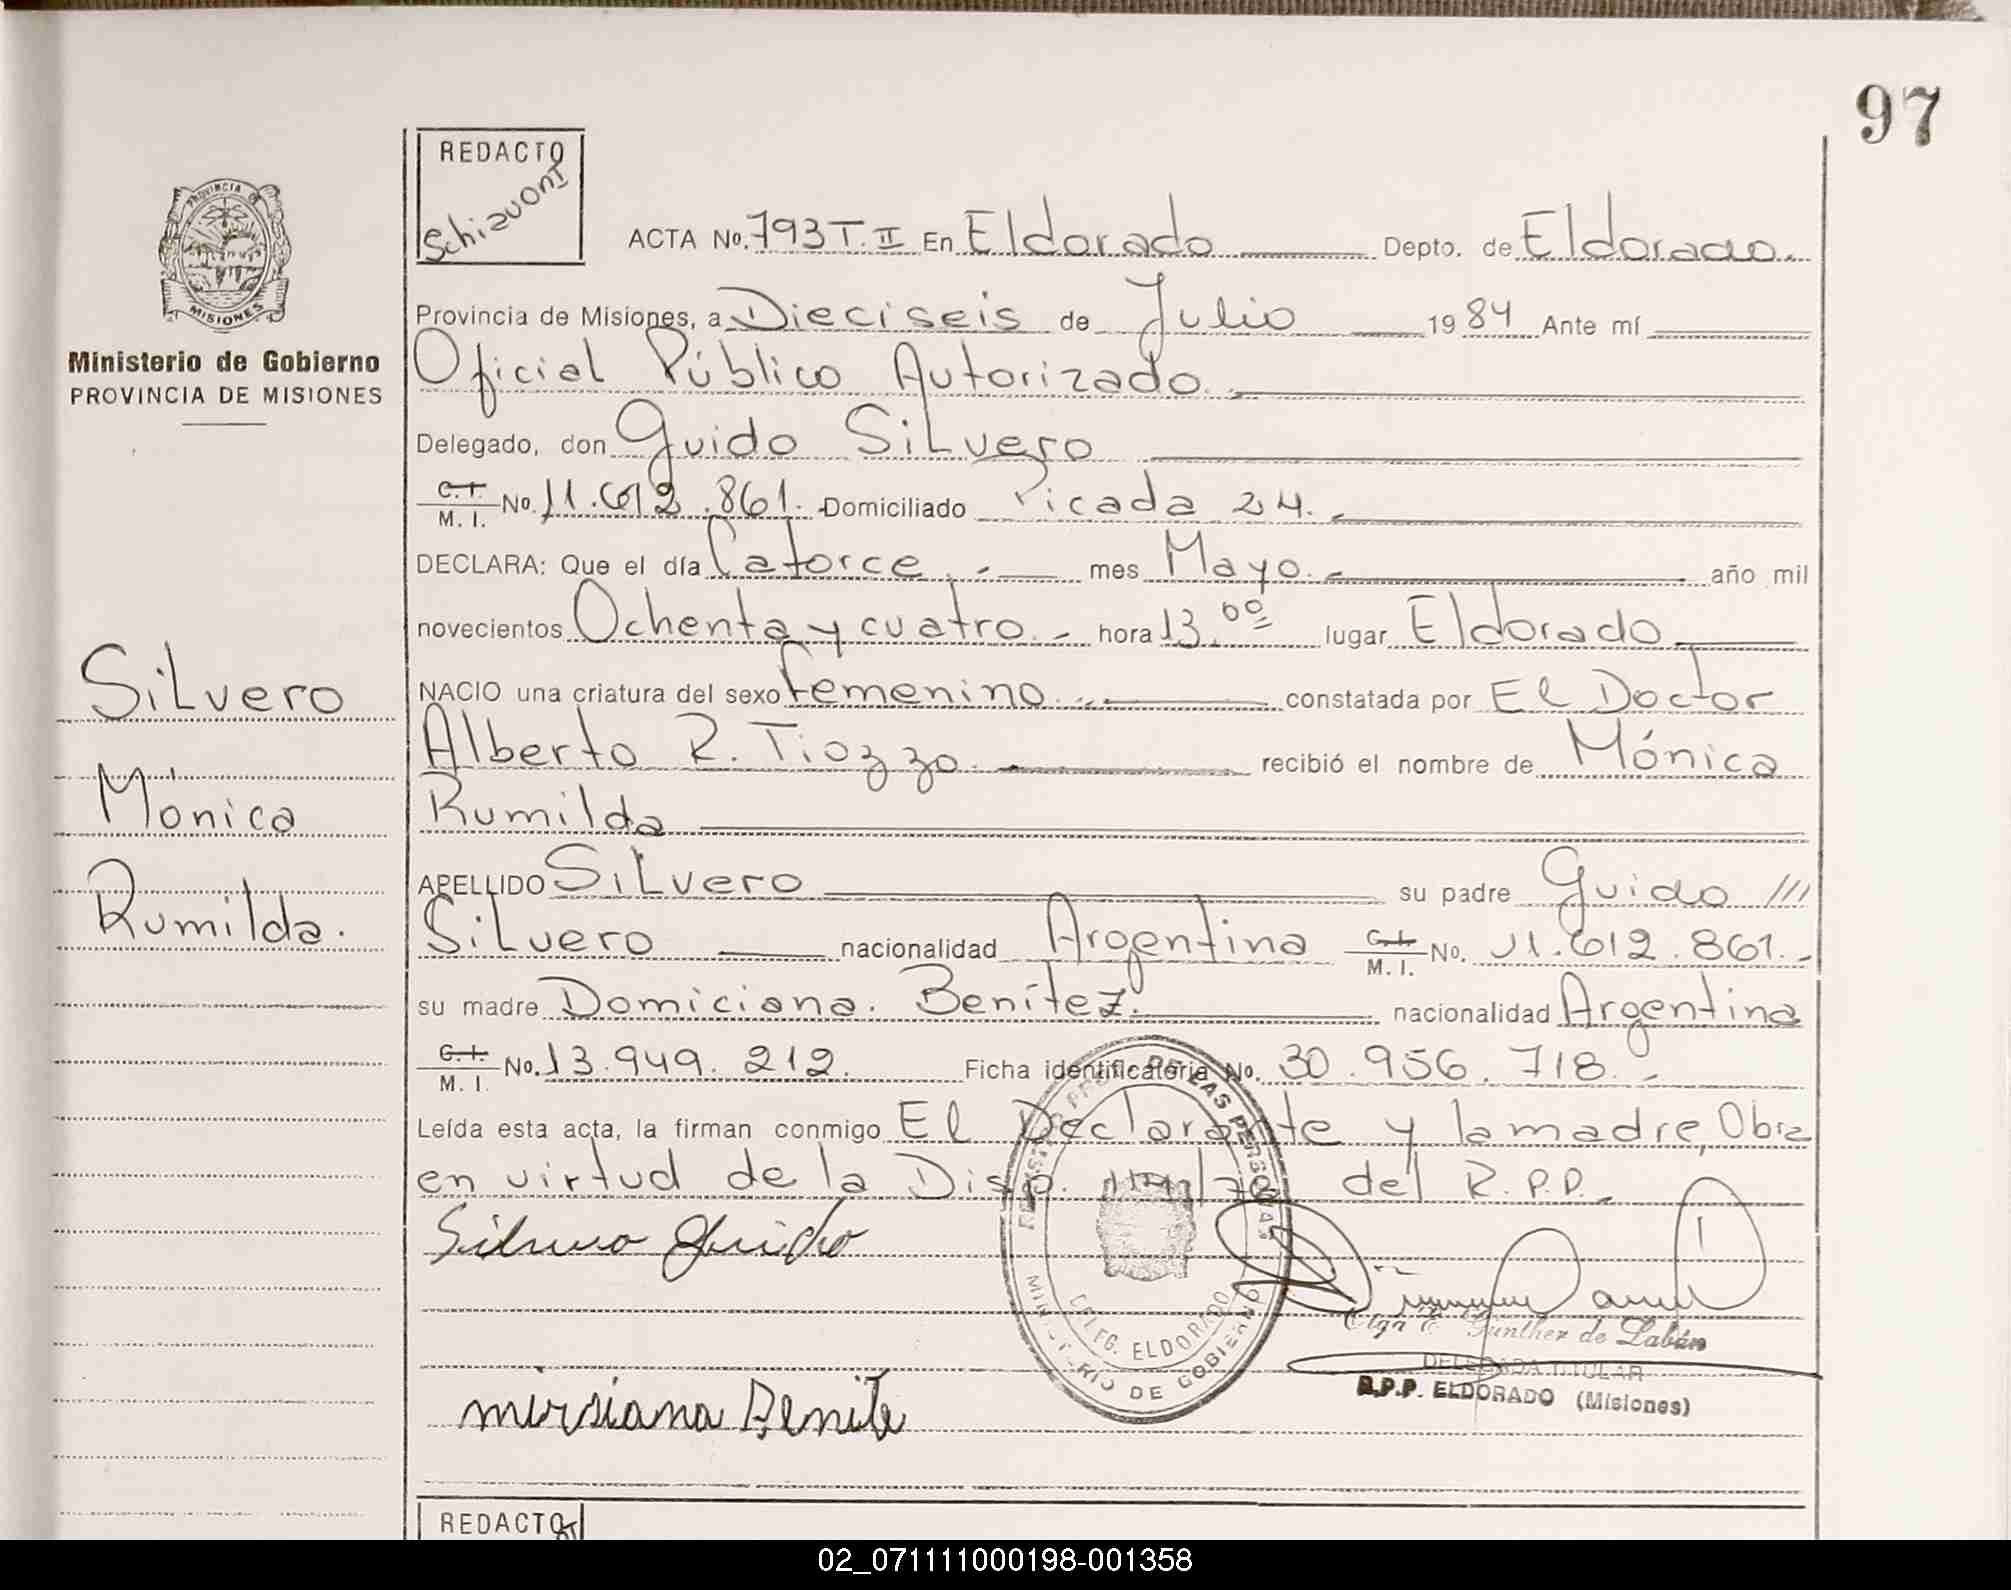 97
REDACTO
Schiavoni
PROVINCIA DE
MISIONES
Ministerio de Gobierno
PROVINCIA DE MISIONES
Silvero
Mónica
Rumilda.
ACTA No. 793 T. II En Eldorado Depto. de Eldorado.
Provincia de Misiones, a Dieciseis de Julio 1984 Ante mí
Oficial Público Autorizado.
Delegado, don Guido Silvero
C.I. M. I. No. 11.612.861. Domiciliado Picada 24.
DECLARA: Que el día Catorce. mes Mayo. año mil
novecientos Ochenta y cuatro. hora 13.00 lugar Eldorado
NACIO una criatura del sexo femenino. constatada por El Doctor
Alberto R. Tiozzo. recibió el nombre de Mónica
Rumilda
APELLIDO Silvero su padre Guido ///
Silvero nacionalidad Argentina C.I. M. I. No. 11.612.861.
su madre Domiciana. Benítez. nacionalidad Argentina
C.I. M. I. No. 13.949.212. Ficha identificatoria No. 30.956.718.
Leída esta acta, la firman conmigo El Declarante y la madre, Obra
en virtud de la Disp. del R.P.P.
Silvero Guido
DE LAS PERSONAS
DELEG. ELDORADO
MINISTERIO DE GOBIERNO
Olga E. Günther de Labán
DELEGADA TITULAR
R.P.P. ELDORADO (Misiones)
mirsiana Benite
REDACTO
02_071111000198-001358